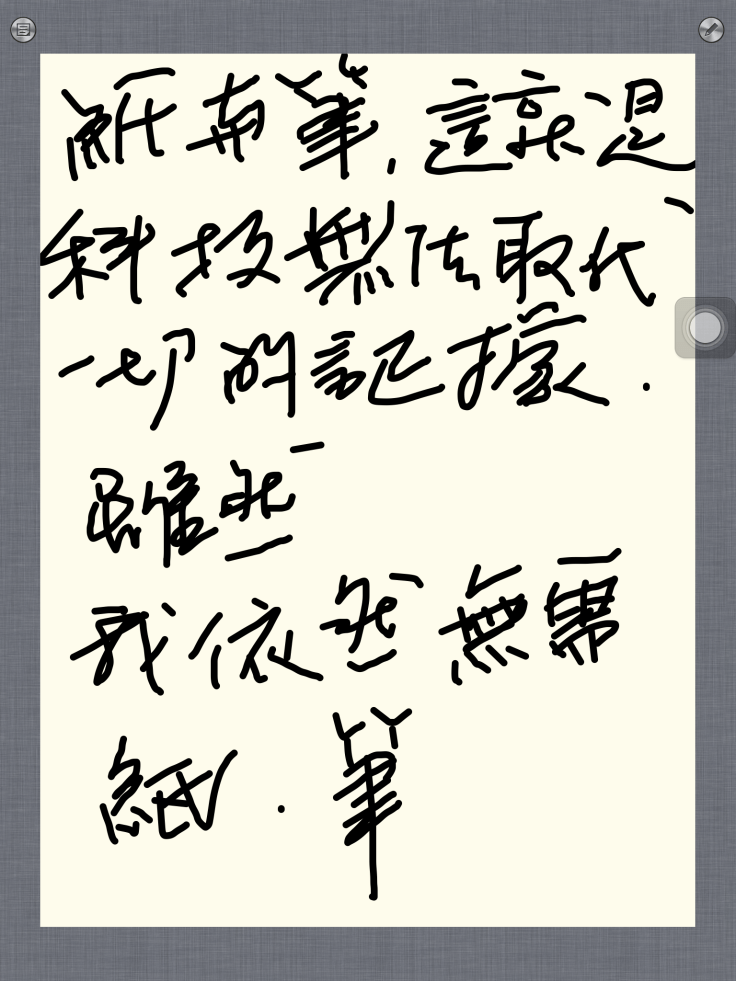 紙有筆,這就是
科技無法取代
一切的記據.
雖然
我依然無需
紙.筆